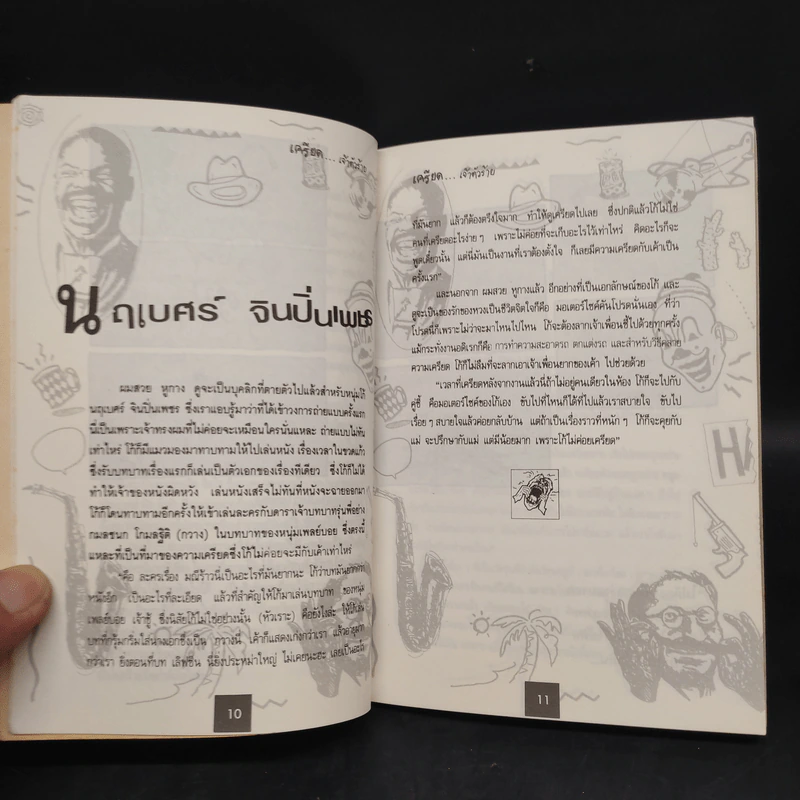 เครียด... เจ้าตัวร้าย
นฤเบศร์ จินปิ่นเพชร
ผมสวย หูกาง ดูจะเป็นบุคลิกที่ตายตัวไปแล้วสำหรับหนุ่มโก้
นฤเบศร์ จินปิ่นเพชร ซึ่งเราแอบรู้มาว่าที่ได้เข้าวงการถ่ายแบบครั้งแรก
นี่เป็นเพราะเจ้าทรงผมที่ไม่ค่อยจะเหมือนใครนั่นแหละ ถ่ายแบบไม่ทัน
เท่าไหร่ โก้ก็มีแมวมองมาทาบทามให้ไปเล่นหนัง เรื่องเวลาในขวดแก้ว
ซึ่งรับบทบาทเรื่องแรกก็เล่นเป็นตัวเอกของเรื่องทีเดียว ซึ่งโก้ก็ไม่ได้
ทำให้เจ้าของหนังผิดหวัง เล่นหนังเสร็จไม่ทันที่หนังจะฉายออกมา
โก้ก็โดนทาบทามอีกครั้งให้เข้าเล่นละครกับดาราเจ้าบทบาทรุ่นพี่อย่าง
กมลชนก โกมลฐิติ (กวาง) ในบทบาทของหนุ่มเพลย์บอย ซึ่งตรงนี้
แหละที่เป็นที่มาของความเครียดซึ่งโก้ไม่ค่อยจะมีกับเค้าเท่าไหร่
"คือ ละครเรื่อง มณีร้าวนี่เป็นอะไรที่มันยากนะ โก้ว่าบทมันยากกว่า
หนังอีก เป็นอะไรที่ละเอียด แล้วที่สำคัญให้โก้มาเล่นบทบาท ของหนุ่ม
เพลย์บอย เจ้าชู้ ซึ่งนิสัยโก้ไม่ใช่อย่างนั้น (หัวเราะ) คือยังไงล่ะ ให้โก้เล่น
บทที่กรุ้มกริ่มใส่นางเอกซึ่งเป็น กวางนี่ เค้าก็แสดงเก่งกว่าเรา แล้วอายุมาก
กว่าเรา ยิ่งตอนที่บท เลิฟซีน นี่ยิ่งประหม่าใหญ่ ไม่เคยนะฮะ เลยเป็นอะไร
10
เครียด... เจ้าตัวร้าย
ที่มันยาก แล้วก็ต้องตรึงใจมาก ทำให้ดูเครียดไปเลย ซึ่งปกติแล้วโก้ไม่ใช่
คนที่เครียดอะไรง่ายๆ เพราะไม่ค่อยที่จะเก็บอะไรไว้เท่าไหร่ คิดอะไรก็จะ
พูดเดี๋ยวนั้น แต่นี่มันเป็นงานที่เราต้องตั้งใจ ก็เลยมีความเครียดกับเค้าเป็น
ครั้งแรก"
และนอกจาก ผมสวย หูกางแล้ว อีกอย่างที่เป็นเอกลักษณ์ของโก้ และ
ดูจะเป็นของรักของหวงเป็นชีวิตจิตใจก็คือ มอเตอร์ไซค์คันโปรดนั่นเอง ที่ว่า
โปรดนี่ก็เพราะไม่ว่าจะมาไหนไปไหน โก้จะต้องลากเจ้าเพื่อนซี้ไปด้วยทุกครั้ง
แม้กระทั่งงานอดิเรกก็คือ การทำความสะอาดรถ ตกแต่งรถ และสำหรับวิธีคลาย
ความเครียด โก้ก็ไม่ลืมที่จะลากเอาเจ้าเพื่อนยากของเค้า ไปช่วยด้วย
"เวลาที่เครียดหลังจากงานแล้วนี่ถ้าไม่อยู่คนเดียวในห้อง โก้ก็จะไปกับ
คู่ซี้ คือมอเตอร์ไซค์ของโก้เอง ขับไปที่ไหนก็ได้ที่ไปแล้วเราสบายใจ ขับไป
เรื่อยๆ สบายใจแล้วค่อยกลับบ้าน แต่ถ้าเป็นเรื่องราวที่หนักๆ โก้ก็จะคุยกับ
แม่ จะปรึกษากับแม่ แต่มีน้อยมาก เพราะโก้ไม่ค่อยเครียด"
11